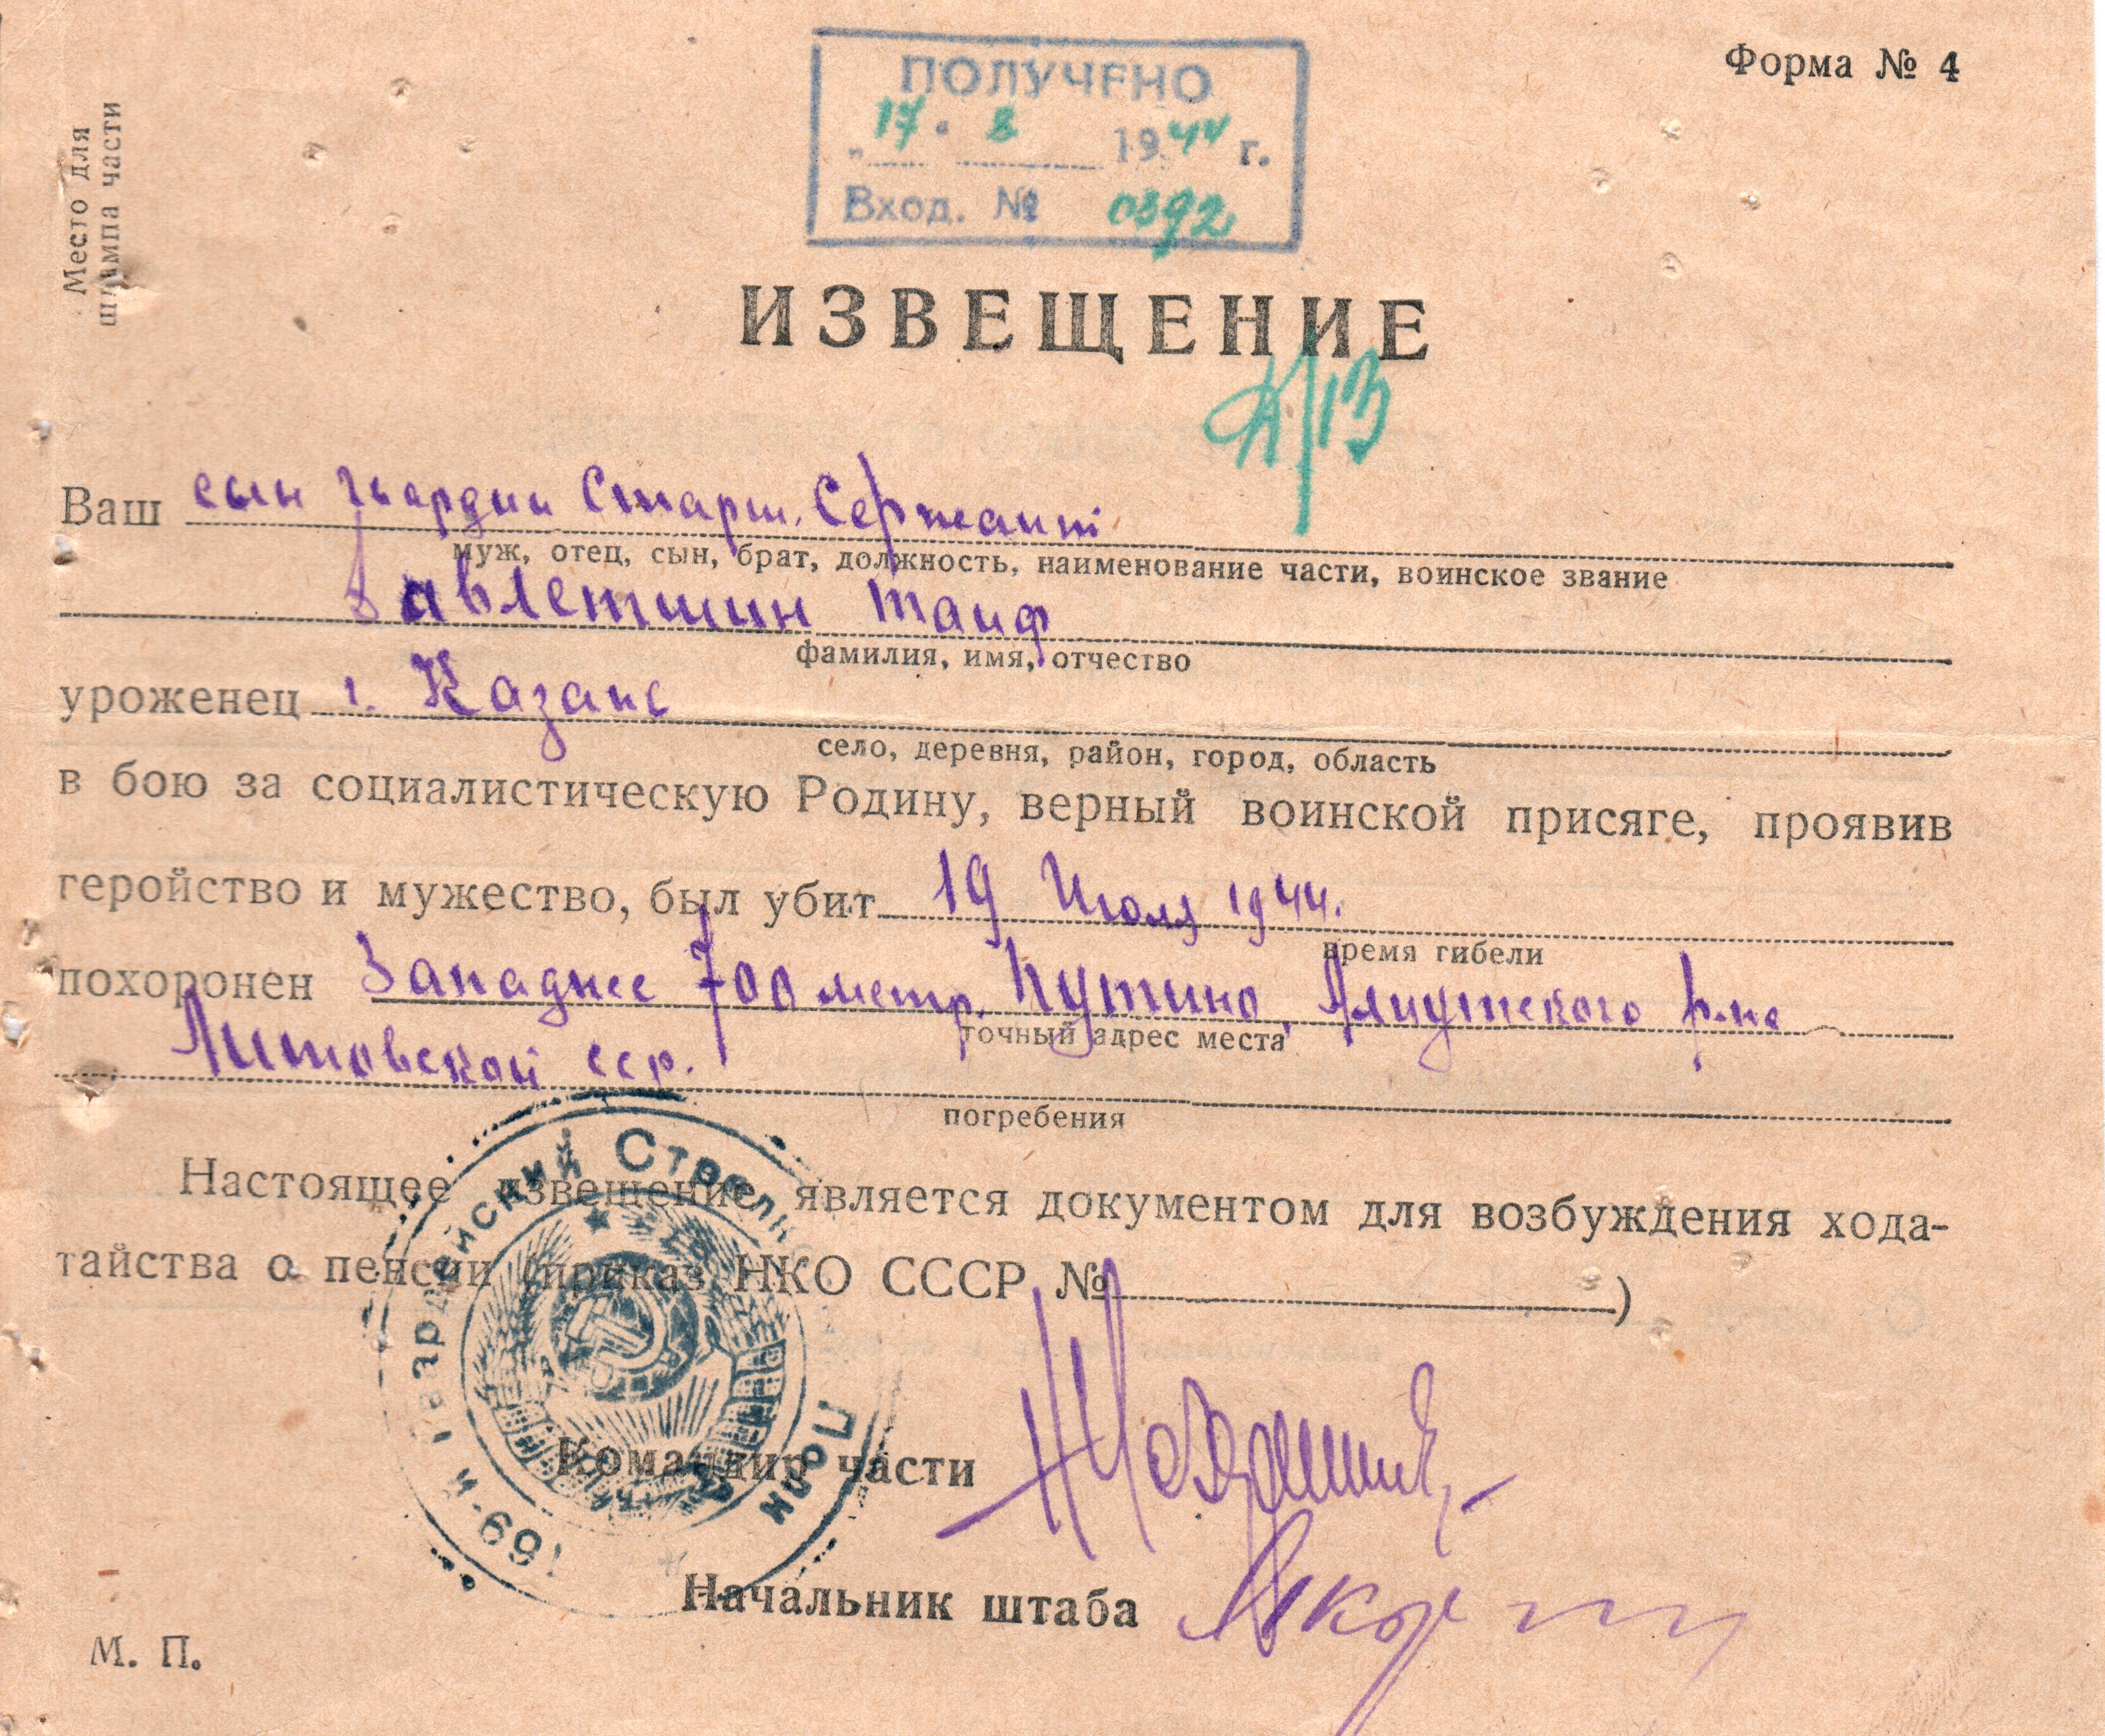 Форма № 4
Место для
штампа части
ПОЛУЧЕНО
„17“ 8 1944 г.
Вход. № 0392
ИЗВЕЩЕНИЕ
Ваш сын гвардии Старш. Сержант
муж, отец, сын, брат, должность, наименование части, воинское звание
Давлетшин Таиф
фамилия, имя, отчество
уроженец г. Казань
село, деревня, район, город, область
в бою за социалистическую Родину, верный воинской присяге, проявив
геройство и мужество, был убит 19 Июля 1944.
время гибели
похоронен Западнее 700 метр. Путино, Алитусского р-на
точный адрес места
Литовской сср.
погребения
Настоящее извещение является документом для возбуждения хода-
тайства о пенсии (приказ НКО СССР № )
169-й Гвардейский Стрелк Полк
Командир части
Начальник штаба
М. П.